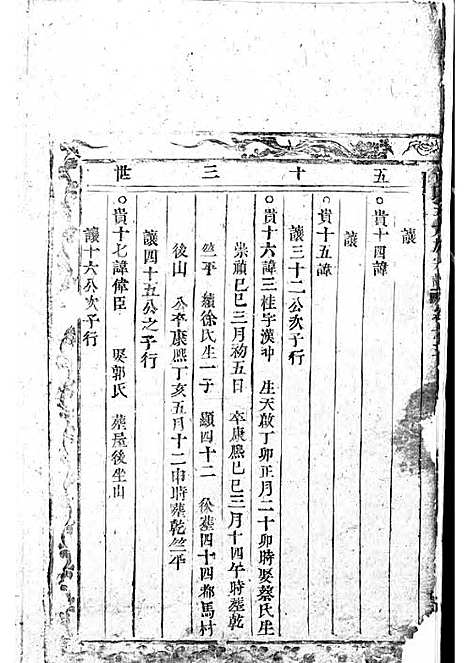 五十三世
讓
貴十四諱
讓
貴十五諱
讓三十二公次子行
貴十六諱三桂字漢冲 生天啟丁卯正月二十卯時娶蔡氏生
崇禎己巳三月初五日 卒康熙己巳三月十四午時塟乾
竺平 續徐氏生一子 顯四十二 後塟四十四都馬村
後山 公卒康熙丁亥五月十二申時葬乾竺平
讓四十五公之子行
貴十七諱偉臣 娶郭氏 葬屋後坐山
讓十六公次子行